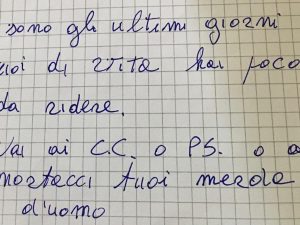 sono gli ultimi giorni
uoi di vita hai poco
da ridere.
Vai ai C.C. o P.S. o a
mortacci tuoi merda
d'uomo